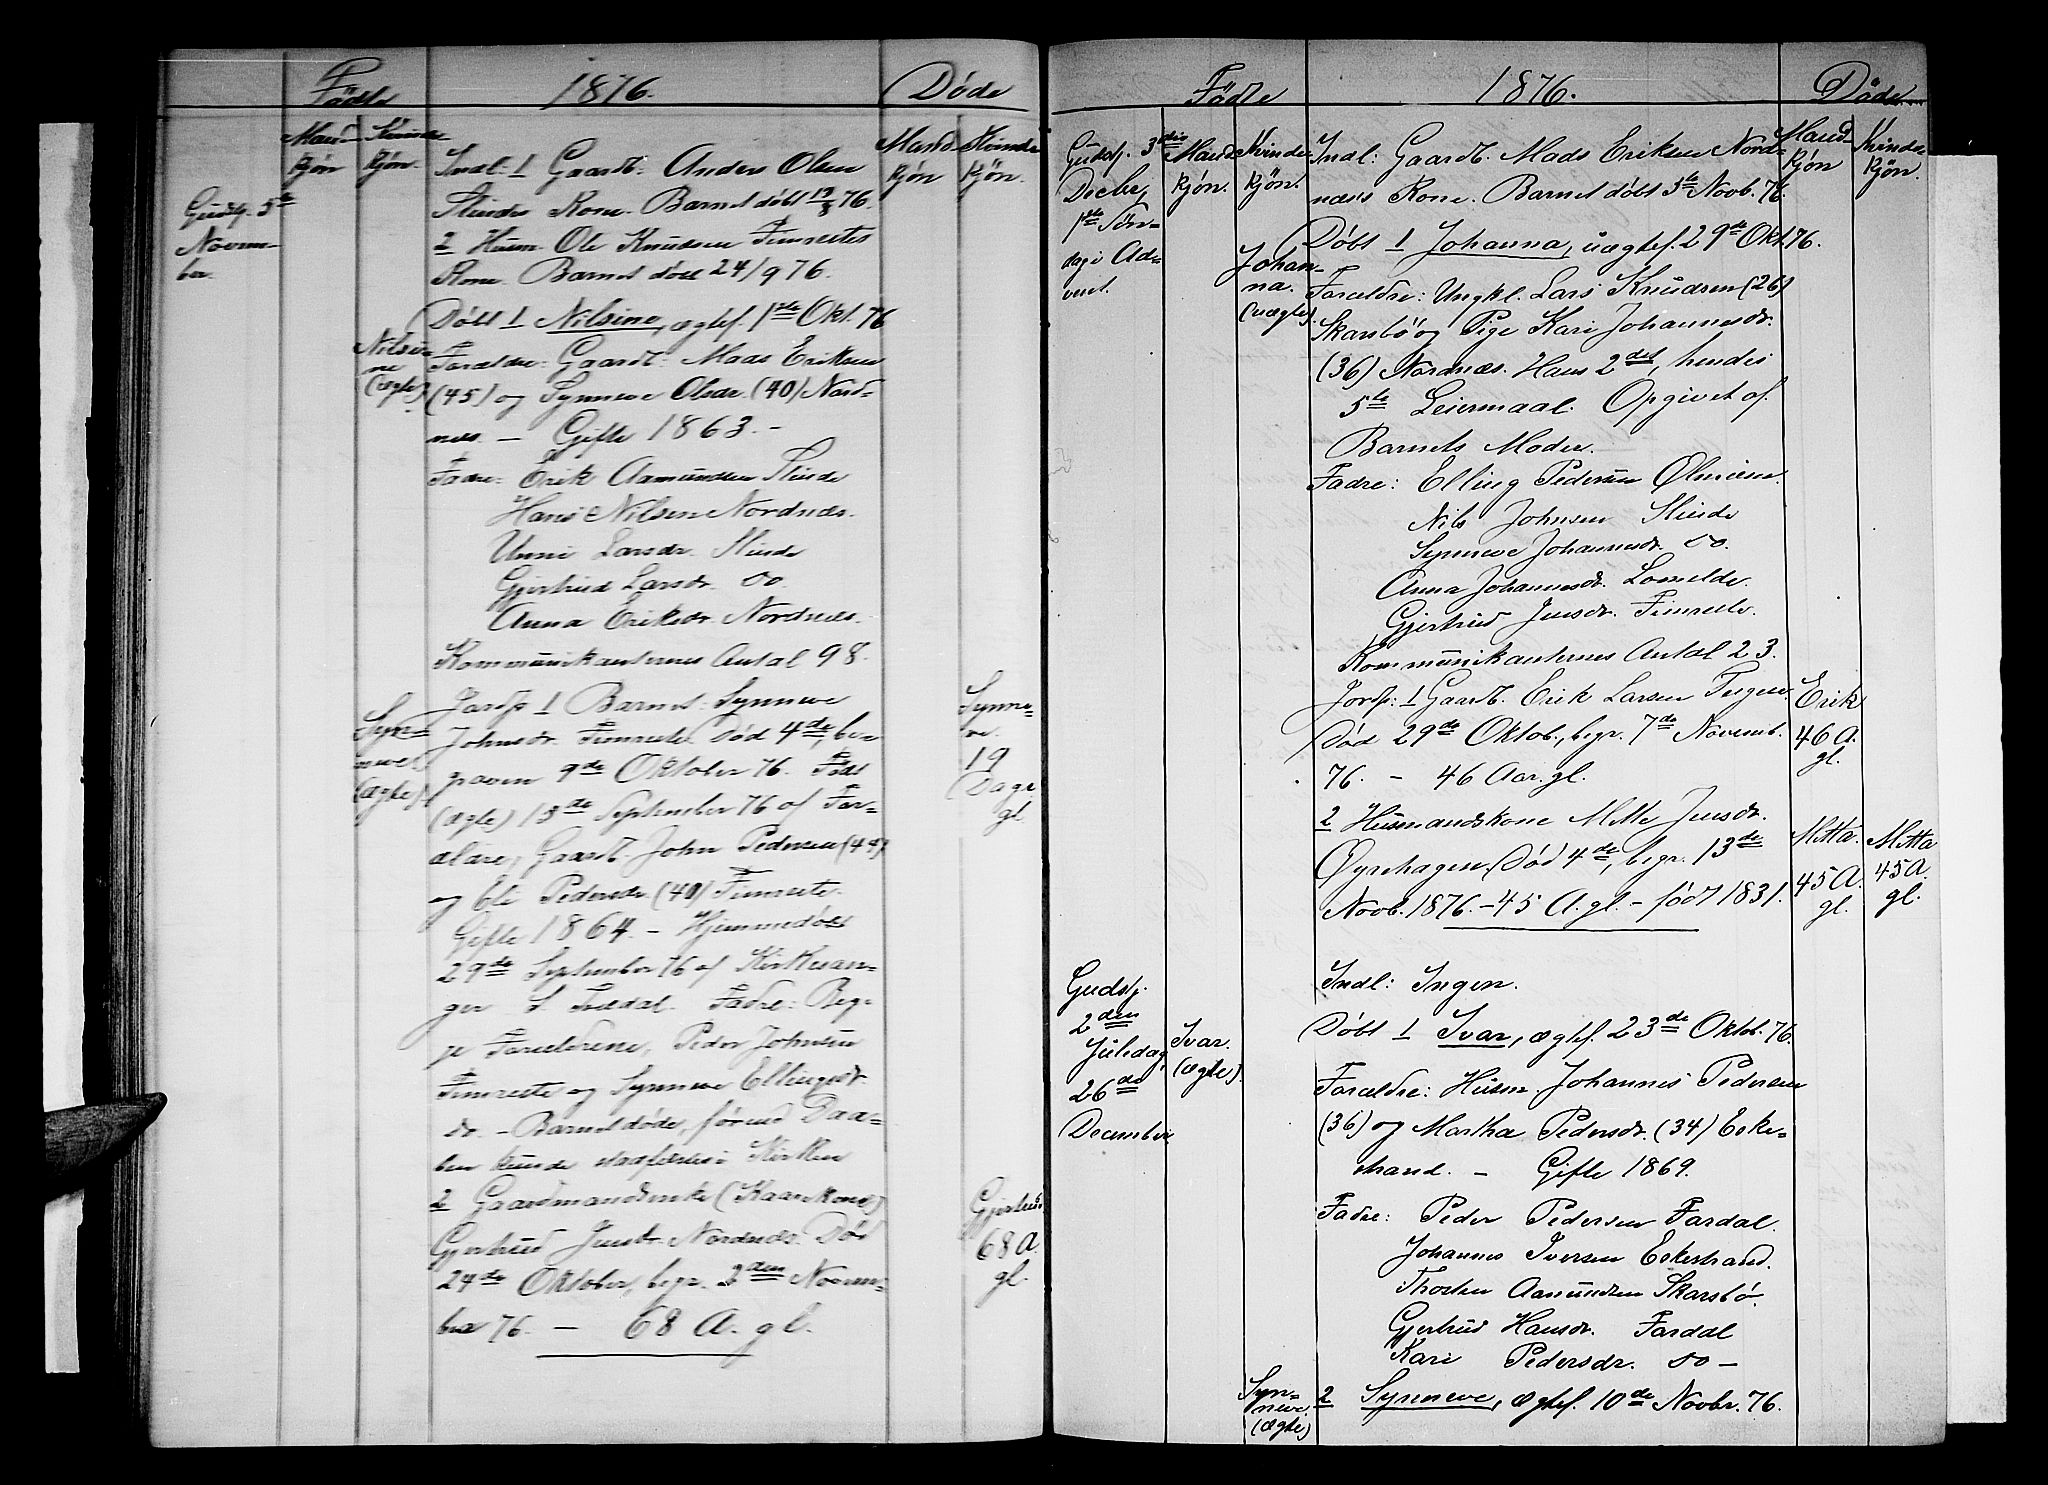 Födte 1876. Döde
Mand- kjön Kvinde kjön. Mand- kjön Kvinde kjön.
Gudstj. 5te Novem- ber
Indl: 1 Gaardb: Anders Olsen
Slinde Kone. Barnet döbt 13/8 76.
2 Husm. Ole Knudsen Fimreites
Kone. Barnet döbt 24/9 76.
Döbt 1 Nilsine, ægtef. 1ste Okt. 76
Nilsi- ne (ægte)
Forældre: Gaardb: Mads Eriksen
(45) og Synneve Olsdr. (40) Nord-
næs. — Gifte 1863. -
Fadre: Erik Aamundsen Slinde
Hans Nilsen Nordnæs.
Unni Larsdr. Slinde
Gjertrud Larsdr. do.
Anna Eriksdr. Nordnæs.
Kommunikanternes Antal 98.
Jordf. 1 Barnet Synneve
Johnsdr. Fimreite. Död 4de, be-
graven 9de Oktober 76. Födt
(ægte) 15de September 76 af For-
ældre, Gaardb. John Pedersen (44)
og Eli Pedersdr. (40) Fimreite.
Gifte 1864. — Hjemmedöbt
29de September 76 af Kirkesan-
ger S. Fredal. Fadre: Beg-
ge Forældrene, Peder Johnsen
Fimreite og Synneve Ellingsdr.
do. - Barnet döde, förend Daa-
ben kunde stadfæstes i Kirken
Syn- neve (ægte)
Synne- ve. 19 Dage gl.
2 Gaardmandsenke (Kaarkone)
Gjertrud Jensdr. Nordnæs. Död
24de Oktober, begr. 2den Novem-
ber 76. — 68 A. gl.
Gjertrud 68 A. gl.
Födte 1876. Döde
Mand- kjön. Kvinde- kjön. Mand- kjön Kvinde kjön.
Gudstj. 3die Decbr, 1ste Sön- dag i Ad- vent.
Indl: Gaardb. Mads Eriksen Nord-
næs's Kone. Barnet döbt 5te Novb. 76.
Döbt 1 Johanna, uægtef. 29de Okt. 76.
Johan- na. (uægte).
Forældre: Ungkl. Lars Knudsen (26)
Skarsbö og Pige Kari Johannesdr.
(36) Nordnæs. Hans 2det, hendes
5te Leiermaal. Opgivet af
Barnets Moder.
Fadre: Elling Pedersen Ølmeim.
Nils Johnsen Slinde
Synneve Johannesdr. do.
Anna Johannesdr. Lomelde.
Gjertrud Jensdr. Fimreite.
Kommunikanternes Antal 23.
Jordf: 1 Gaardb. Erik Larsen
Död 29de Oktob., begr. 7de Novemb.
76. - 46 Aar. gl.
Erik 46 A. gl.
2 Husmandskone Mitte Jensdr.
Øyrehagen. Död 4de, begr. 13de
Novb. 1876. - 45 A. gl. - född 1831.
Mitta. 45 A. gl.
Mitta 45 A. gl.
Gudstj. 2den Juledag, 26de December
Indl: Ingen.
Döbt 1 Ivar, ægtef. 23de Oktob. 76.
Ivar. (ægte).
Forældre: Husm. Johannes Pedersen
(36) og Martha Pedersdr. (34) Eske-
strand. — Gifte 1869.
Fadre: Peder Pedersen Fardal.
Johannes Iversen Eskestrand.
Thosten Aamundsen Skarsbö.
Gjertrud Hansdr. Fardal
Kari Pedersdr. do -
Syn- neve (ægte)
2 Synneve, ægtef. 10de Novbr. 76.